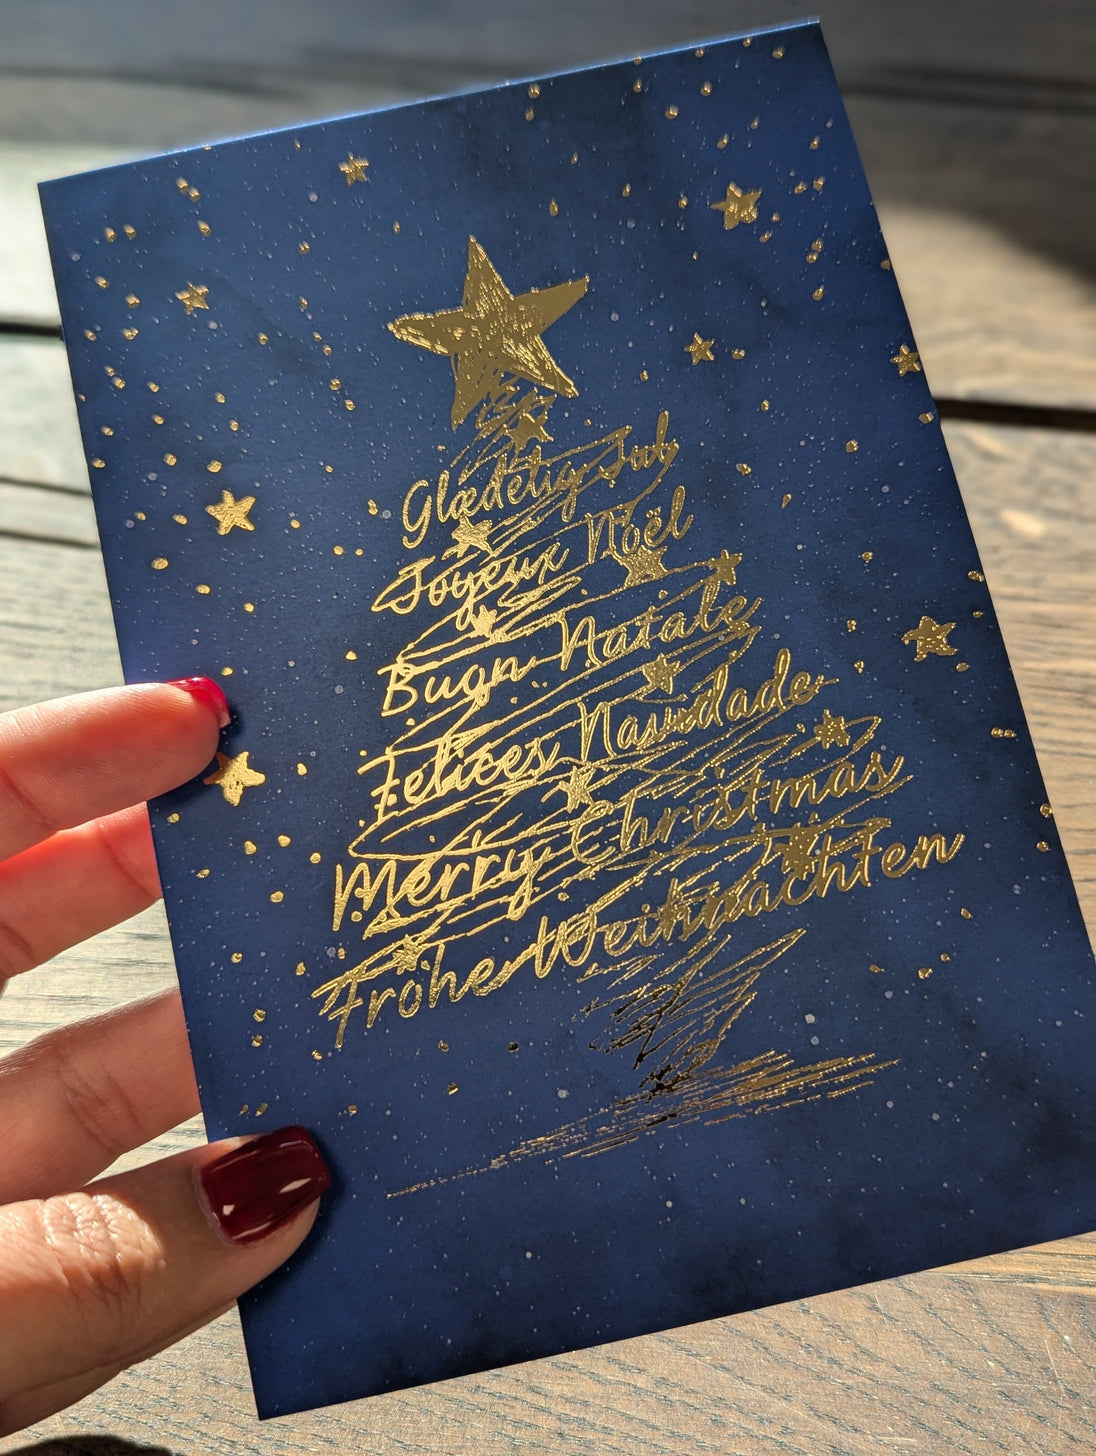 Glædelig Jul
Joyeux Noël
Buon Natale
Felices Navidade
Merry Christmas
Frohe Weihnachten